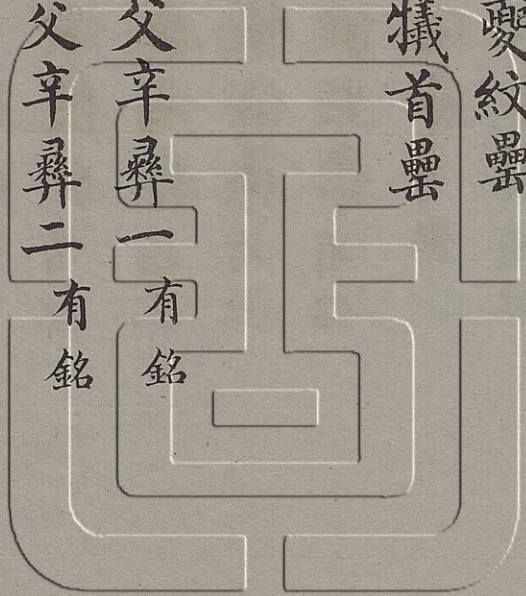 夔紋罍
犧首罍
父辛彝一有銘
父辛彝二有銘